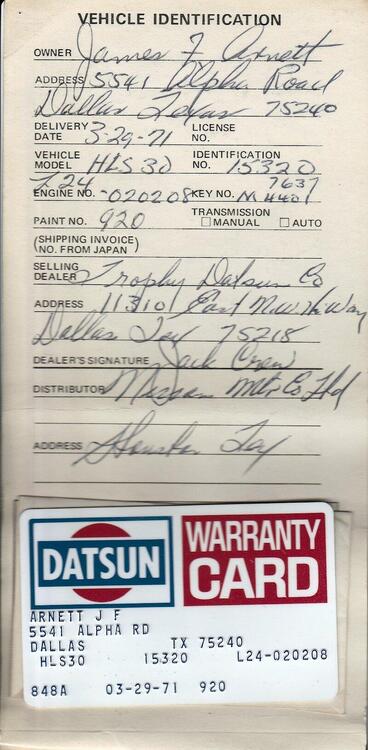 VEHICLE IDENTIFICATION
OWNER James F Arnett
ADDRESS 5541 Alpha Road
Dallas Texas 75240
DELIVERY DATE 3-29-71 LICENSE NO.
VEHICLE MODEL HLS30 IDENTIFICATION NO. 15320
L24 7637
ENGINE NO. -020208 KEY NO. M4401
PAINT NO. 920 TRANSMISSION
MANUAL AUTO
(SHIPPING INVOICE)
(NO. FROM JAPAN)
SELLING DEALER Trophy Datsun Co
ADDRESS 11310 East
Dallas Tex 75218
DEALER'S SIGNATURE Jack Crew
DISTRIBUTOR Nissan Mtr Co Ltd
ADDRESS Houston Tex
DATSUN
WARRANTY
CARD
ARNETT J F
5541 ALPHA RD
DALLAS TX 75240
HLS30 15320 L24-020208
848A 03-29-71 920